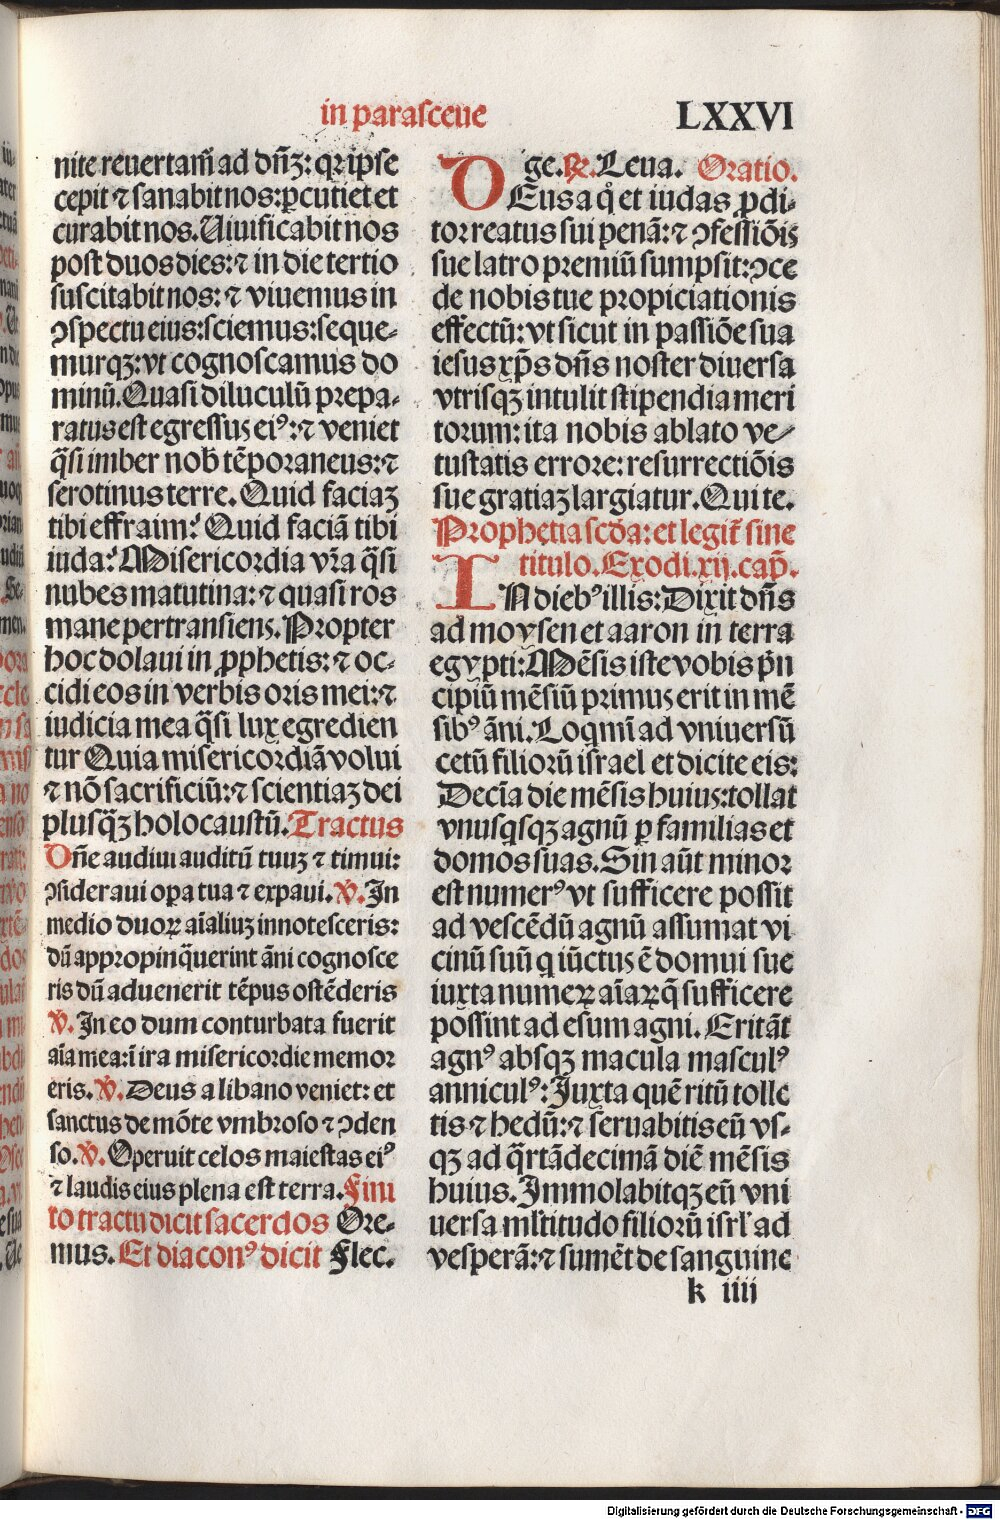 in parasceue
LXXVI
nite reuertam̃ ad dñʒ: qr ipse
cepit ⁊ sanabit nos: ꝑcutiet et
curabit nos. Uiuificabit nos
post duos dies: ⁊ in die tertio
suscitabit nos: ⁊ viuemus in
ꝯspectu eius: sciemus: seque-
murqʒ: vt cognoscamus do
minũ. Quasi diluculũ prepa-
ratus est egressus eiꝰ: ⁊ veniet
q̃si imber nob̃ tẽporaneus: ⁊
serotinus terre. Quid faciaʒ
tibi effraim? Quid faciã tibi
iuda? Misericordia vr̃a q̃si
nubes matutina: ⁊ quasi ros
mane pertransiens. Propter
hoc dolaui in ꝓphetis: ⁊ oc-
cidi eos in verbis oris mei: ⁊
iudicia mea q̃si lux egredien
tur Quia misericordiã volui
⁊ nõ sacrificiũ: ⁊ scientiaʒ dei
plusq̃ʒ holocaustũ. Tractus
Dñe audiui auditũ tuuʒ ⁊ timui:
ꝯsideraui oꝑa tua ⁊ expaui. ℣. In
medio duoꝝ aĩaliuʒ innotesceris:
dũ appropinq̃uerint ãni cognosce
ris dũ aduenerit tẽpus ostẽderis
℣. In eo dum conturbata fuerit
aĩa mea: ĩ ira misericordie memor
eris. ℣. Deus a libano veniet: et
sanctus de mõte vmbroso ⁊ ꝯden
so. ℣. Operuit celos maiestas eiꝰ
⁊ laudis eius plena est terra. Fini
to tractu dicit sacerdos Ore-
mus. Et diaconꝰ dicit Flec.
ge. ℟. Leua. Oratio.
DEus a q̊ et iudas ꝓdi-
tor reatus sui penã: ⁊ ꝯfessiõis
sue latro premiũ sumpsit: ꝯce
de nobis tue propiciationis
effectũ: vt sicut in passiõe sua
iesus xp̃s dñs noster diuersa
vtrisqʒ intulit stipendia meri
torum: ita nobis ablato ve-
tustatis errore: resurrectiõis
sue gratiaʒ largiatur. Qui te.
Prophetia scđa: et legit̃ sine
titulo. Exodi. xij. cap̃.
IN diebꝰ illis: Dixit dñs
ad moysen et aaron in terra
egypti: Mẽsis iste vobis p̃n
cipiũ mẽsiũ primus erit in mẽ
sibꝰ ãni. Loqmĩ ad vniuersũ
cetũ filiorũ israel et dicite eis:
Decĩa die mẽsis huius: tollat
vnusqsqʒ agnũ ꝑ familias et
domos suas. Sin aũt minor
est numerꝰ vt sufficere possit
ad vescẽdũ agnũ assumat vi
cinũ suũ q iũctus ẽ domui sue
iuxta numeꝝ aĩaꝝ q̃ sufficere
possint ad esum agni. Erit ãt
agnꝰ absqʒ macula masculꝰ
anniculꝰ: Juxta quẽ ritũ tolle
tis ⁊ hedũ: ⁊ seruabitis eũ vs-
qʒ ad q̃rtãdecimã diẽ mẽsis
huius. Immolabitqʒ eũ vni
uersa ml̃titudo filiorũ isrl̃ ad
vesperã: ⁊ sumẽt de sanguine
k iiij
Digitalisierung gefördert durch die Deutsche Forschungsgemeinschaft - DFG